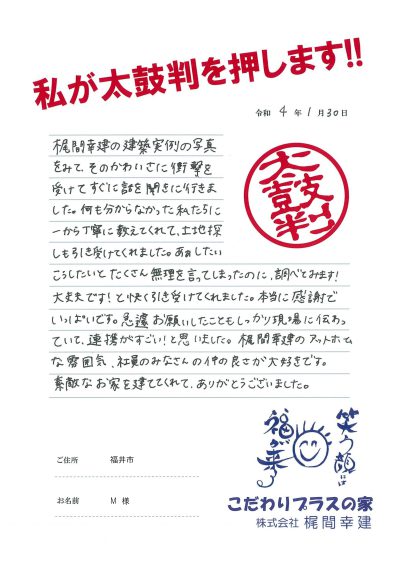 私が太鼓判を押します!!
令和 4 年 1 月 30 日
梶間幸建の建築実例の写真
をみて、そのかわいさに衝撃を
受けてすぐに話を聞きに行きま
した。何も分からなかった私たちに
一から丁寧に教えてくれて、土地探
しも引き受けてくれました。あぁしたい
こうしたいとたくさん無理を言ってしまったのに、調べてみます!
大丈夫です!と快く引き受けてくれました。本当に感謝で
いっぱいです。急遽お願いしたこともしっかり現場に伝わっ
ていて、連携がすごい!と思いました。梶間幸建のアットホーム
な雰囲気、社員のみなさんの仲の良さが大好きです。
素敵なお家を建ててくれて、ありがとうございました。
太鼓判
笑う顔には
福が来る
ご住所 福井市
お名前 M 様
こだわりプラスの家
株式会社 梶間幸建